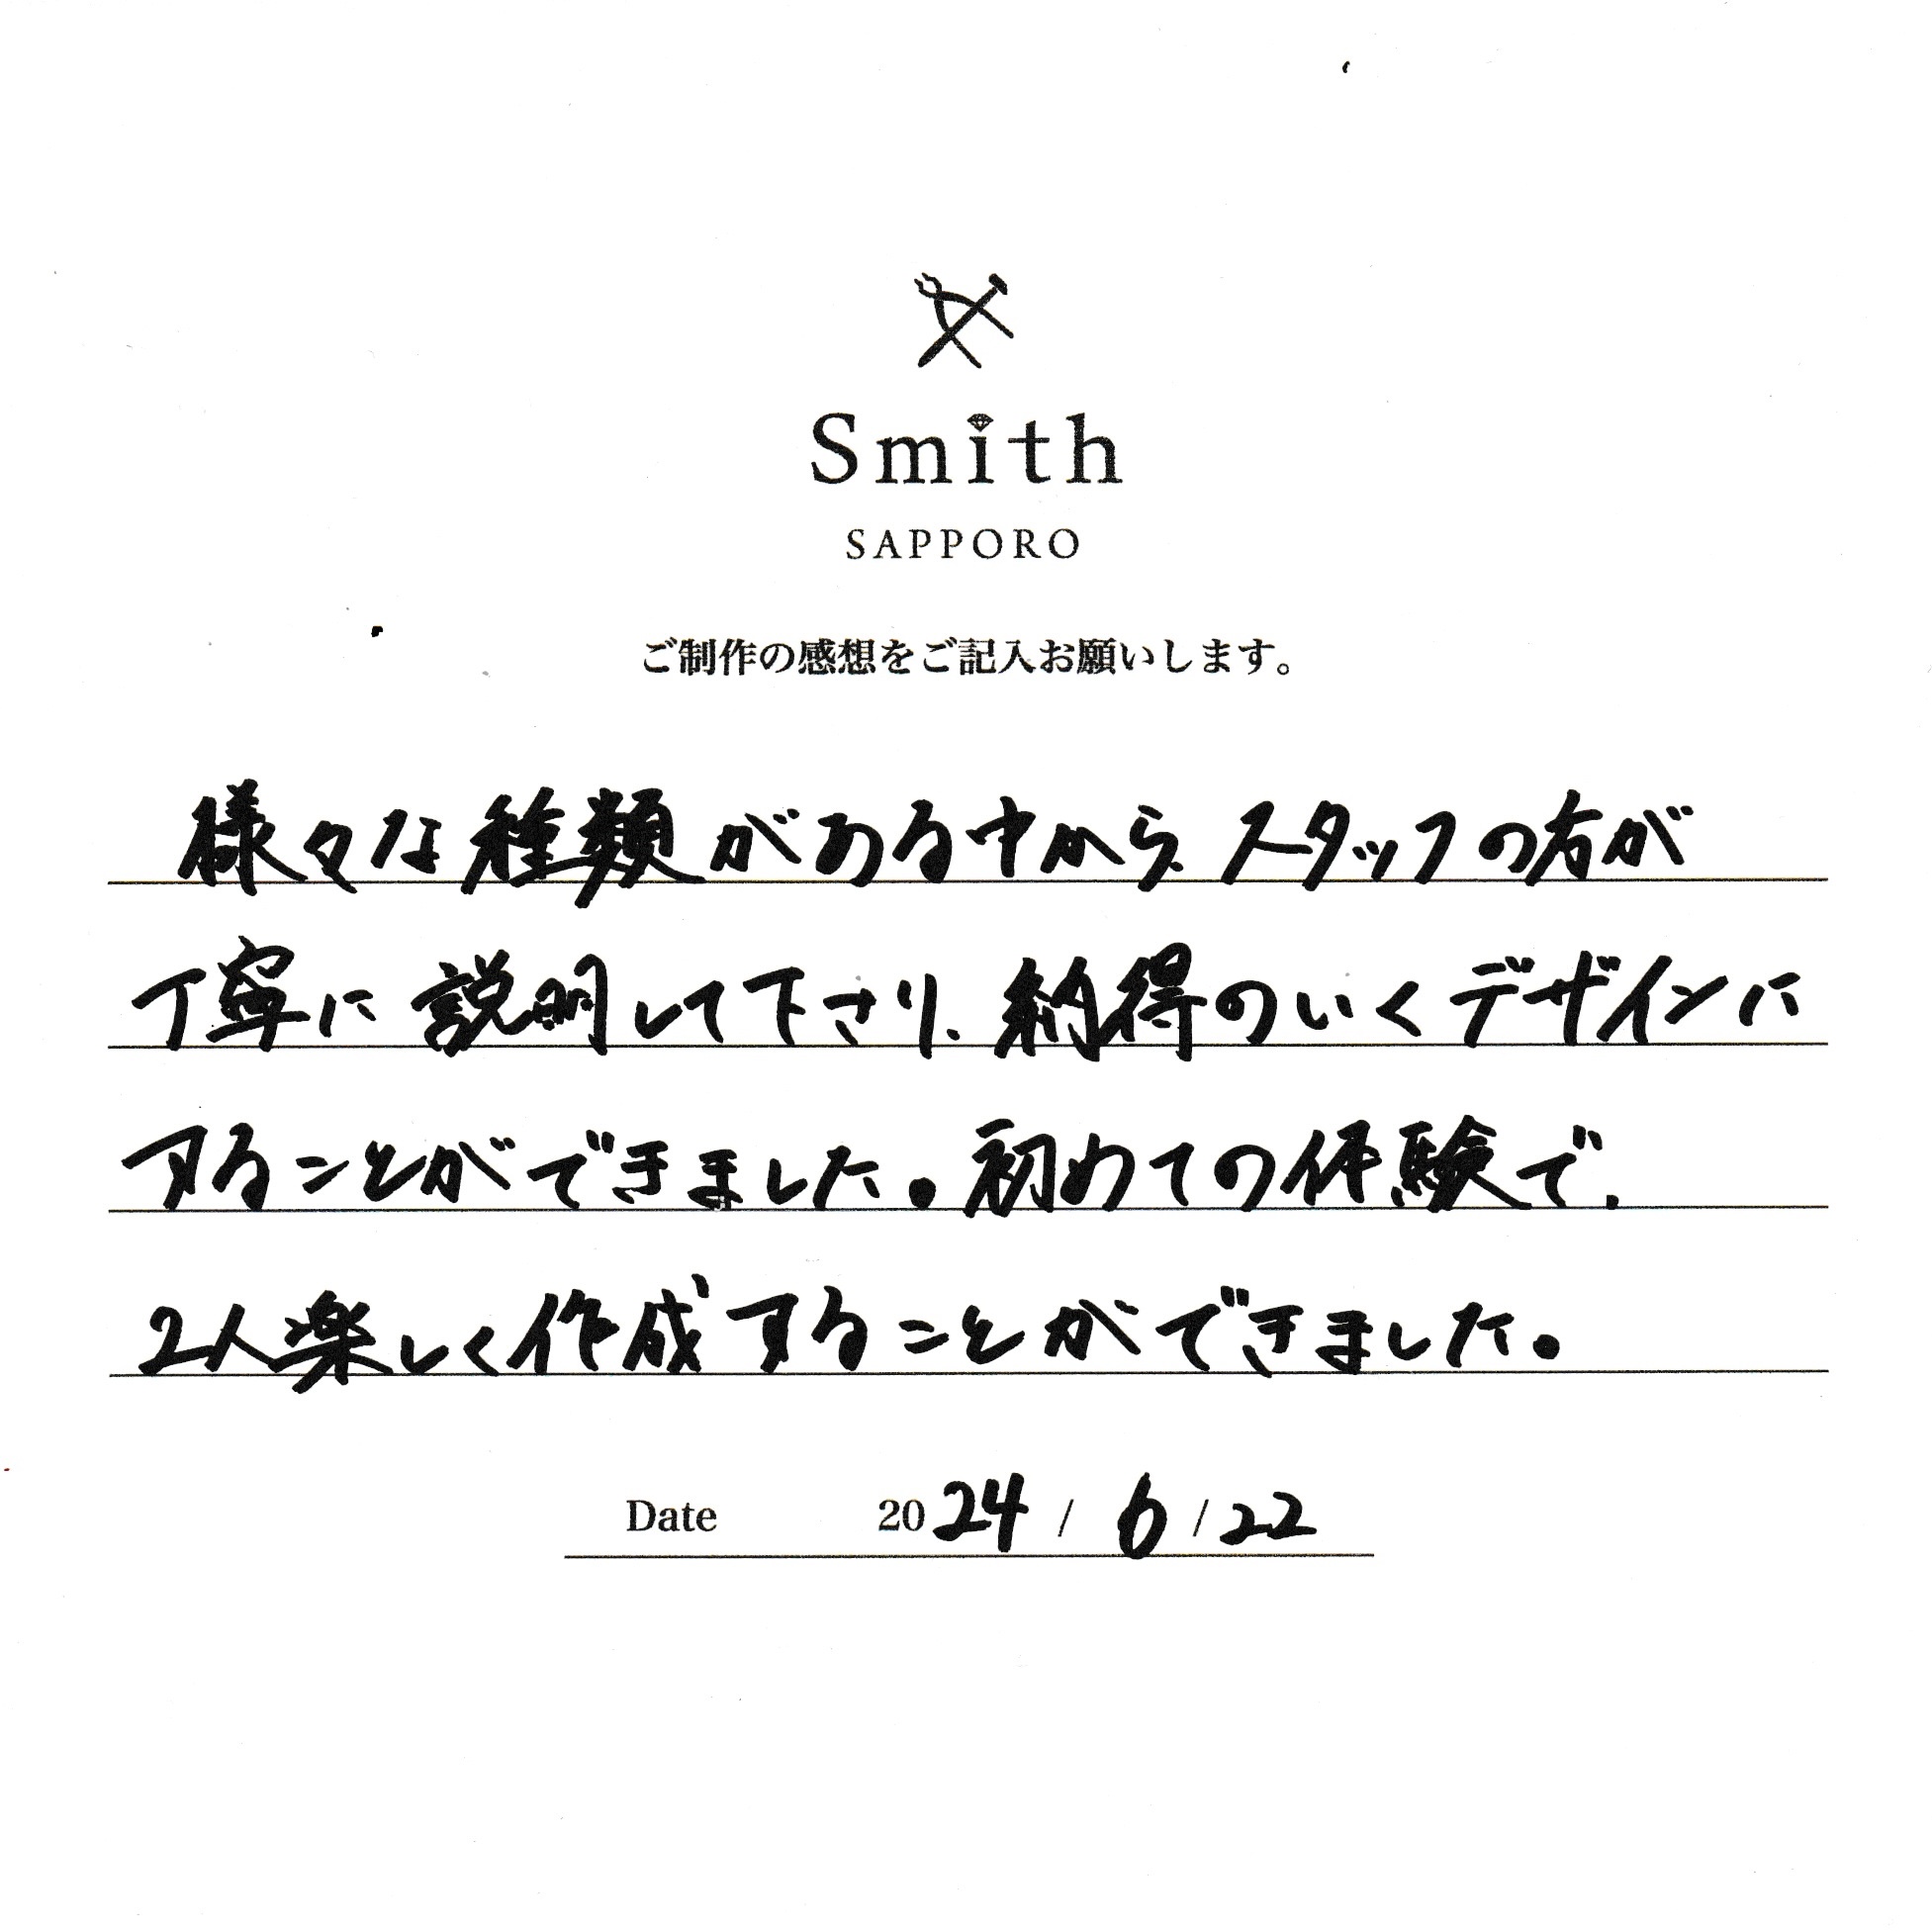 Smith
SAPPORO
ご制作の感想をご記入お願いします。
様々な種類がある中から、スタッフの方が
丁寧に説明して下さり、納得のいくデザインに
することができました。初めての体験で、
2人楽しく作成することができました。
Date 2024 / 6 / 22